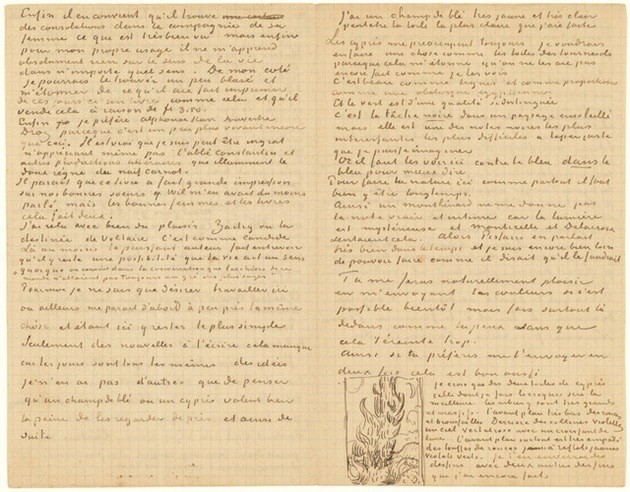 Enfin il en convient qu'il trouve
des consolations dans la compagnie de sa
femme ce que est très bien vu mais enfin
pour mon propre usage il ne m'apprend
absolument rien sur le sens de la vie
dans n'importe quel sens. De mon coté
je pourrais le trouver un peu
m'étonner de ce qu'il aie fait imprimer
de ces jours ci un livre comme cela et qu'il
vende cela à raison de fr 3.50.
Enfin je préfère alphonse Karr Souvestre
Droz parceque c'est un peu plus vivant encore
que ceci. Il est vrai que je suis peut être ingrat
n'appréciant même pas l'abbé Constantin et
autres productions littéraires que illuminent le
doux règne du naïf Carnot.
Il parait que ce livre a fait grande impression
sur nos bonnes soeurs. Wil m'en avait du moins
parlé mais les bonnes femmes et les livres
cela fait deux.
J'ai relu avec bien du plaisir Zadig ou la
destinée de Voltaire. C'est comme candide
Là au moins le puissant auteur fait entrevoir
qu'il y reste une possibilité que la vie ait un sens
quoiqu'on convint dans la conversation que les choses de ce
monde n'allaient pas toujours au gré des plus sages.
Pour moi je ne sais que désirer travailler ici
ou ailleurs me parait d'abord à peu près la même
chose et étant ici y rester le plus simple
Seulement des nouvelles à t'écrire cela manque
car les jours sont tous les mêmes des idées
je n'en ai pas d'autres que de penser
qu'un champ de blé ou un cyprès valent bien
la peine de les regarder de près et ainsi de
suite
J'ai un champ de blé très jaune et très clair
peut être la toile la plus claire que j'aie faite
Les cyprès me preoccupent toujours je voudrais
en faire une chose comme les toiles des tournesols
parceque cela m'étonne qu'on ne les aie pas
encore fait comme je les vois
C'est beau comme lignes et comme proportions
comme une obélisque egyptienne.
Et le vert est d'une qualité si distinguée
C'est la tache noire dans un paysage ensoleillé
mais elle est une des notes noires les plus
interessantes les plus difficiles à taper juste
que je puisse imaginer
Or il faut les voir ici contre le bleu dans le
bleu pour mieux dire
Pour faire la nature ici comme partout il faut
bien y être longtemps.
Ainsi un monthénard ne me donne pas
la note vraie et intime car la lumière
est mystérieuse et monticelli et Delacroix
sentaient cela. Alors Pissaro en parlait
très bien dans le temps et je suis encore bien loin
de pouvoir faire comme il disait qu'il le faudrait
Tu me feras naturellement plaisir
en m'envoyant les couleurs si c'est
possible bientôt mais fais surtout là
dedans comme tu peux sans que
cela t'éreinte trop.
Ainsi si tu préfères me l'envoyer en
deux fois cela est bon aussi
je crois que des deux toiles de cyprès
celle dont je fais le croquis sera la
meilleure les arbres y sont très grands
et massifs. l'avant plan très bas des ronces
et broussailles. Derrière des collines violettes
un ciel vert et rose avec un croissant de
lune. L'avant plan surtout est très empâté
des touffes de ronces à reflets jaunes
violets verts. je t'en enverrai des
dessins avec deux autres dessins
que j'ai encore faits.